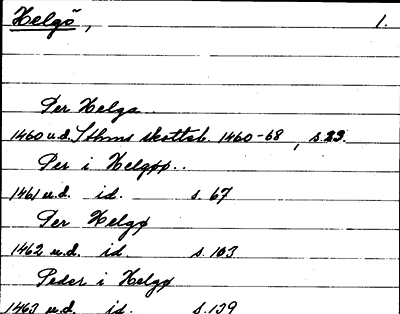 Helgö, 1.
Per Helga..
1460 u.d. Sthms skottsb. 1460-68, s.23.
Per i Helgøø..
1461 u.d. id. s.67
Per Helgø
1462 u.d. id. s.103
Peder i Helgø
1463 u.d. id. s.139